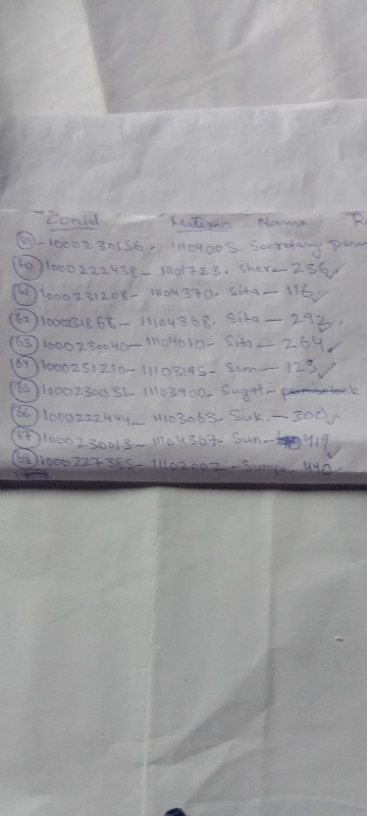 Conid Name
59 - 1000230156 - 11104005. Secretary
60 1000222438 - 11101723. Sher - 236 ✓
61 1000231208 - 11104370. Sita - 116 ✓
62 1000231868 - 11104368. Sita - 292 ✓
63 1000230040 - 11104010 - Sita - 264 ✓
64 1000231210 - 11103195 - Som - 123 ✓
65 1000230031 - 11103900. Sugat -
66 1000222444 - 11103063. Suk. - 300 ✓
67 1000230013 - 11104367. Sun - 419 ✓
68 1000227385 - 11102002 - 440.